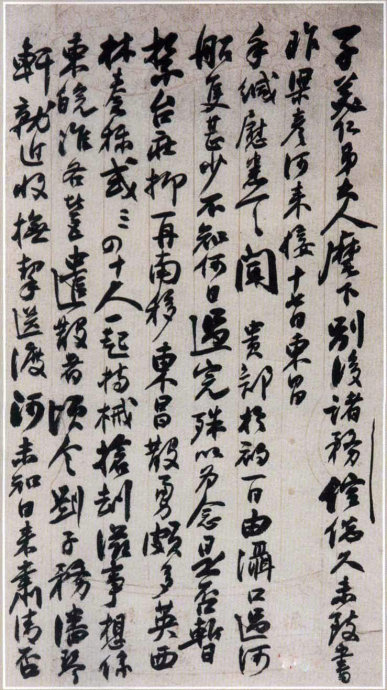 子美仁弟大人麾下别後諸務倥傯久未致書
昨梁彦河来接十七日東昌
手緘慰悉一一聞貴部於初一日由灄口過河
船隻甚少不知何日過完殊以为念是否暫
紮台莊抑再南移東昌散勇頗多英西
林奏稱或三三四十人一起持械搶刦滋事想係
東皖淮各營遣散者頃令劉子務潘琴
軒就近收撫挈送渡河未知日来肅清否